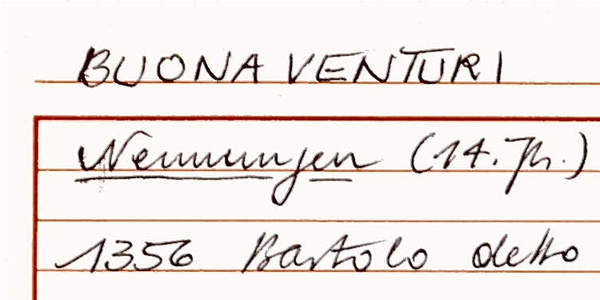 BUONAVENTURI
Nennungen (14. Jh.)
1356 Bartolo detto